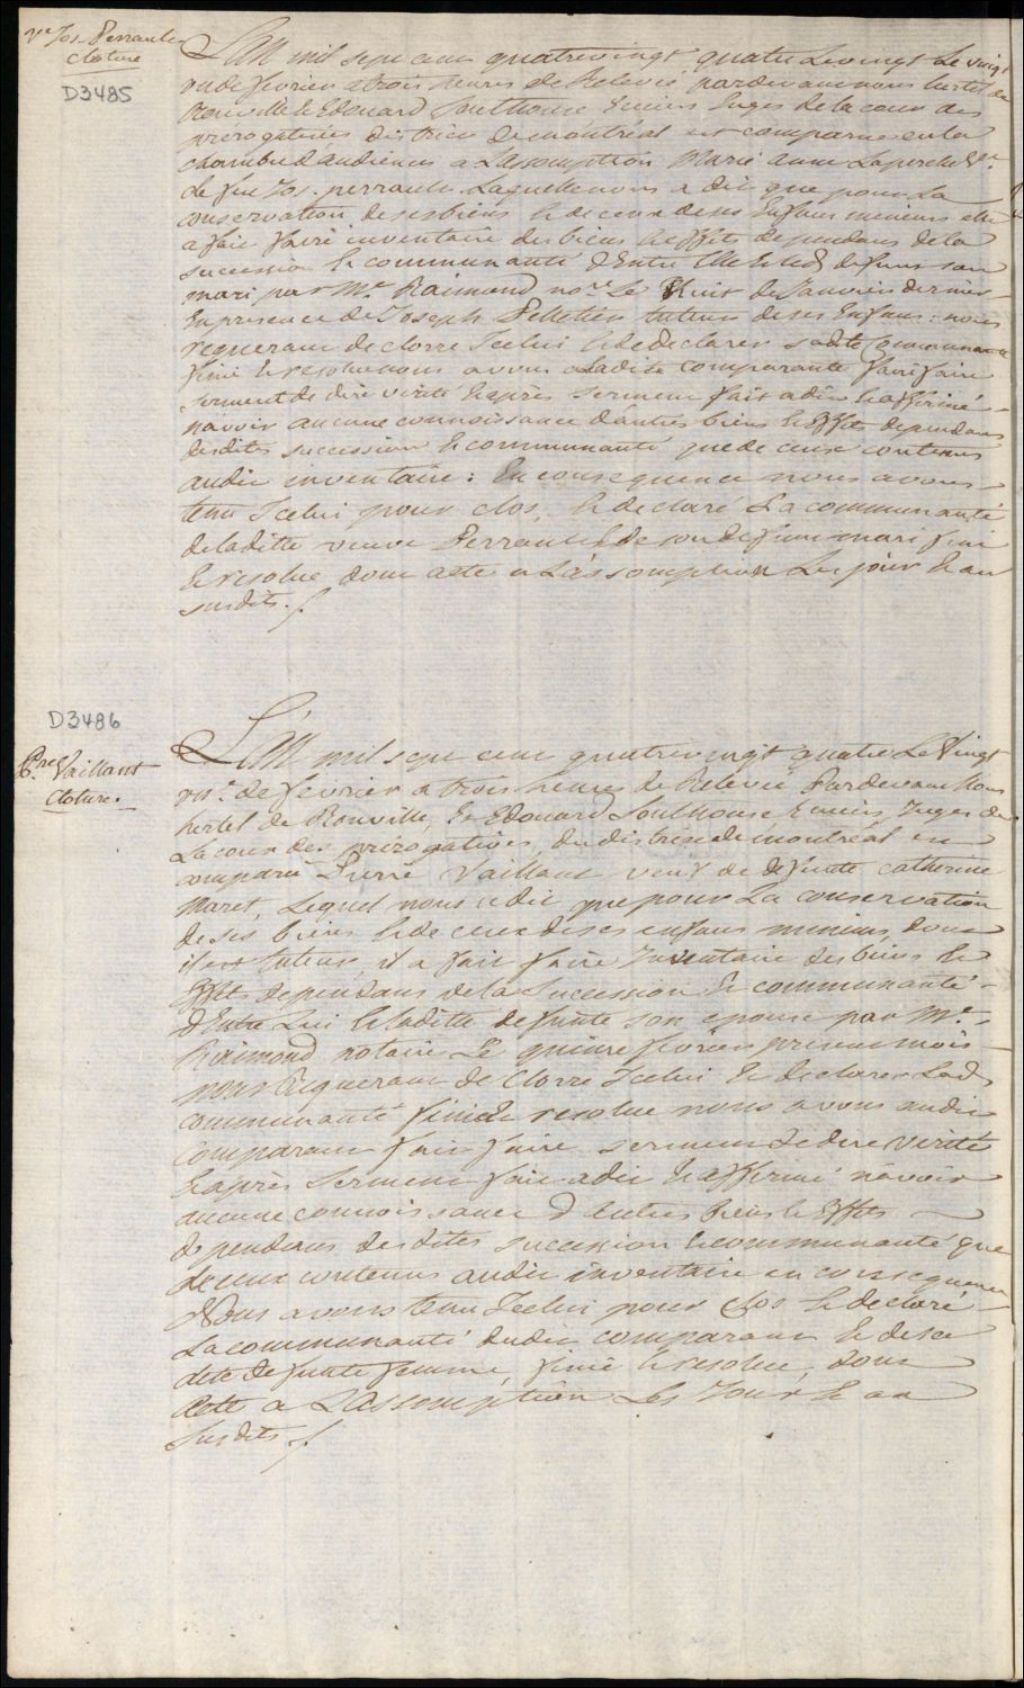 Ve Jos. Perrault
Cloture
D3485
L'an mil sept cent quatrevingt quatre Le vingt
un de fevrier a trois heures de Relevée pardevant nous hertel de
Rouville & Edouard Southouse Ecuiers Juges de la cour des
prerogatives district de montréal est comparue en la
chambre d'audience a L'assomption Marie anne Laperche Ve
de feu Jos. perrault Laquelle nous a dit que pour La
conservation de ses biens & de ceux de ses Enfans mineurs elle
a fait faire inventaire des biens & effets dependans de la
succession & communauté d'Entre Elle & led. defunt son
mari par Me Raimond nore Le huit de Janvier dernier
En presence de Joseph Pelletier tuteur de ses Enfans: nous
requerant de clorre Icelui & de declarer sadte Communauté
finie & resolue nous avons a Ladite comparante fait faire
serment de dire verité & après serment fait a dit & affirmé
n'avoir aucune connoissance d'autres biens & effets dependans
desdites succession & communauté que de ceux contenus
audit inventaire: En consequence nous avons
tenu Icelui pour clos, & declaré La communauté
de laditte veuve Perrault & de son defunt mari finie
& resolue dont acte a L'assomption Les jour & an
susdits. /.
D3486
Pre Vaillant
Cloture.
L'an mil sept cent quatrevingt quatre Le Vingt
un. de fevrier a trois heures de Relevée Pardevant Nous
hertel de Rouville, & Edouard Southouse Ecuiers Juges de
La cour des prérogatives, du district de montréal est
comparu Pierre Vaillant veuf de defunte catherine
Maret, Lequel nous a dit que pour La conservation
de ses biens & de ceux de ses enfans mineurs dont
il est tuteur, il a fait faire Inventaire des biens &
effets dependans de la Succession & communauté
d'Entre Lui & laditte defunte son epouse par Me
Raimond notaire Le quinze fevrier present mois
nous Requerant de Clorre Icelui & declarer Lad.
communauté finie & resolue nous avons audit
Comparant fait faire serment de dire verité
& après Serment fait a dit & affirmé n'avoir
aucune connoissance d'autres biens & effets
dependans desdites succession & communauté que
de ceux contenus audit inventaire en consequence
Nous avons tenu Icelui pour clos & declaré
La communauté dudit comparant & de sa
dite defunte femme, finie & resolue, dont
Acte a L'Assomption Les Jour & an
Susdits /.